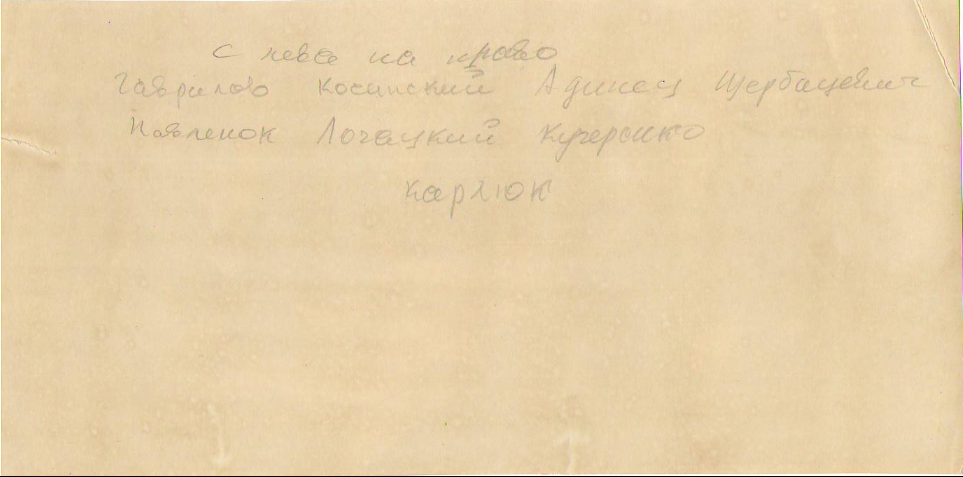 С лева на право
Гаврилов Косинский Адинец Щербацевич
Павленок Лочацкий Кучеренко
Карлюк